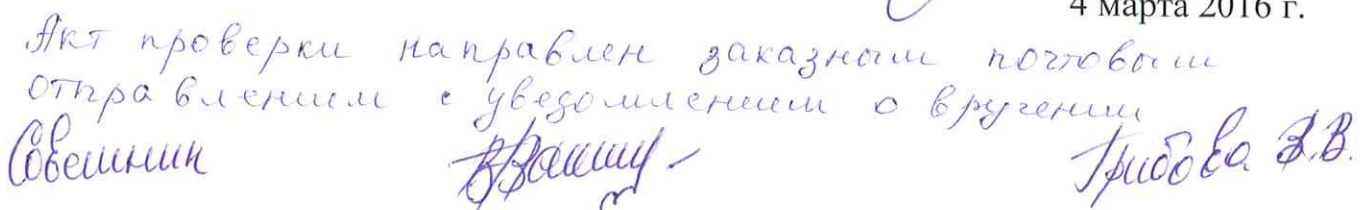 4 марта 2016 г.
Акт проверки направлен заказным почтовым
отправлением с уведомлением о вручении
Грибова В.В.